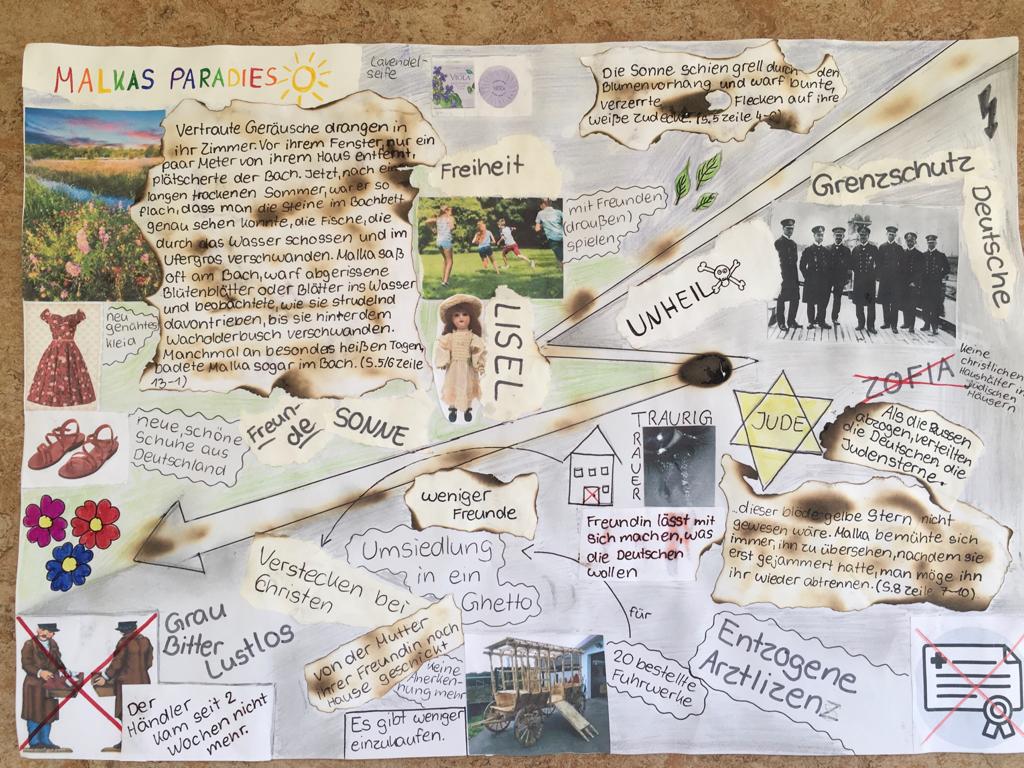 MALKAS PARADIES
Lavendel-
seife
VIOLA
Die Sonne schien grell durch den
Blumenvorhang und warf bunte,
verzerrte Flecken auf ihre
weiße Zudecke. (S.5 Zeile
Vertraute Geräusche drangen in
ihr Zimmer. Vor ihrem Fenster, nur ein
paar Meter von ihrem Haus entfernt,
plätscherte der Bach. Jetzt, nach ein
langen trockenen Sommer, war er so
flach, dass man die Steine im Bachbett
genau sehen konnte, die Fische, die
durch das Wasser schossen und im
Ufergras verschwanden. Malka saß
oft am Bach, warf abgerissene
Blütenblätter oder Blätter ins Wasser
und beobachtete, wie sie strudelnd
davontrieben, bis sie hinter dem
Wacholderbusch verschwanden.
Manchmal an besonders heißen Tagen,
badete Malka sogar im Bach. (S.5/6 Zeile
13-1)
Freiheit
mit Freunden
(draußen)
spielen
Grenzschutz
Deutsche
UNHEIL
neu
genähtes
Kleid
LISEL
neue, schöne
Schuhe aus
Deutschland
Freun-
de
SONNE
ZOFIA
keine
christlichen
Haushälter in
jüdischen
Häusern
JUDE
Als die Russen
abzogen, verteilten
die Deutschen die
Judensterne.
TRAURIG
TRAUER
weniger
Freunde
Freundin lässt mit
sich machen, was
die Deutschen
wollen
...dieser blöde gelbe Stern nicht
gewesen wäre. Malka bemühte sich
immer, ihn zu übersehen, nachdem sie
erst gejammert hatte, man möge ihn
ihr wieder abtrennen. (S.8 Zeile 7-10)
Umsiedlung
in ein
Ghetto
Verstecken bei
Christen
Grau
Bitter
Lustlos
von der Mutter
ihrer Freundin nach
Hause geschickt
keine
Anerken-
nung mehr
für
20 bestellte
Fuhrwerke
Entzogene
Arztlizenz
Der
Händler
kam seit 2
Wochen nicht
mehr.
Es gibt weniger
einzukaufen.